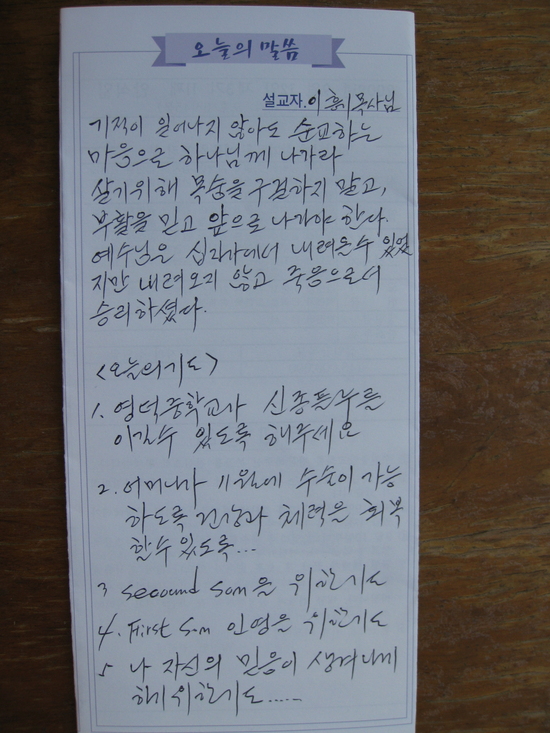 오늘의 말씀
설교자. 이 목사님
기적이 일어나지 않아도 순교하는
마음으로 하나님께 나가라
살기위해 목숨을 구걸하지 말고,
부활을 믿고 앞으로 나가야 한다.
예수님은 십자가에서 내려올수 있었
지만 내려오지 않고 죽음으로서
승리하셨다.
<오늘의기도>
1. 영덕중학교가 신종플루를
이길수 있도록 해주세요
2. 어머니가 11월에 수술이 가능
하도록 건강과 체력을 회복
할수 있도록...
3 secound son을 위한기도
4. First son 인영을 위한기도
5 나 자신의 믿음이 생겨나게
하기위한기도.....